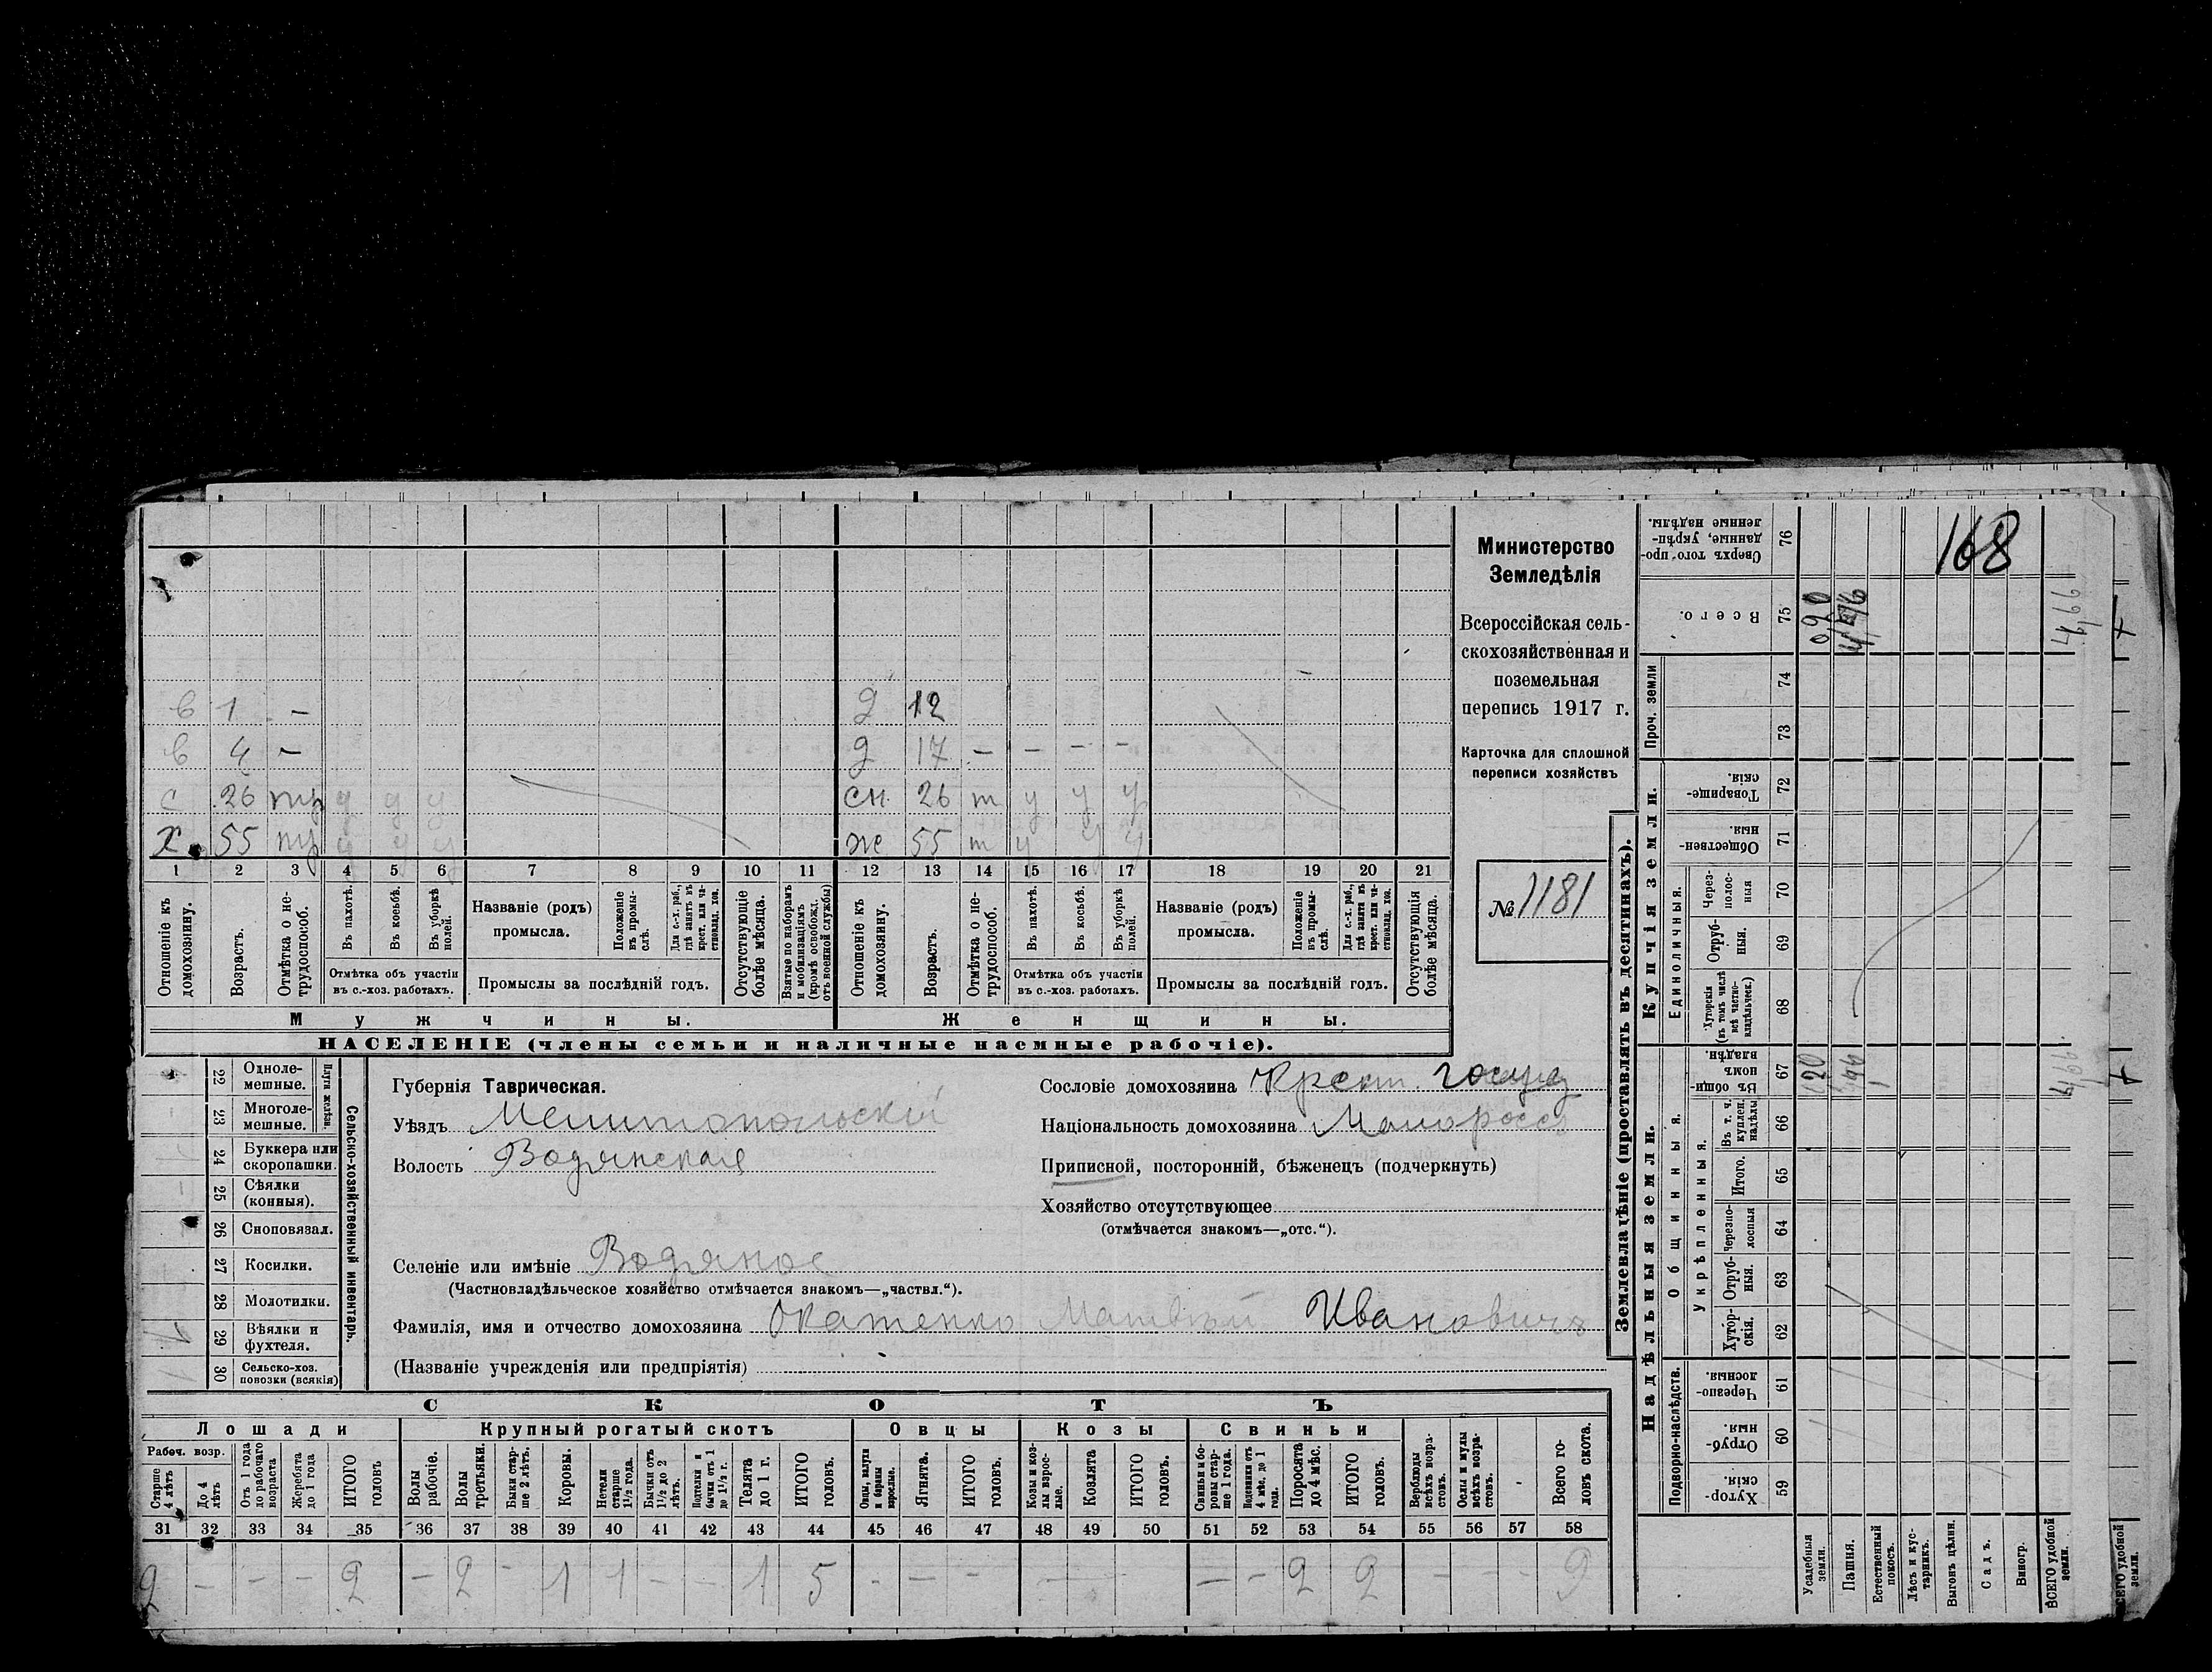 168
Министерство
Земледѣлія
Всероссійская сель-
скохозяйственная и
поземельная
перепись 1917 г.
Карточка для сплошной
переписи хозяйствъ
№ 1181
в 1 — д 12
в 4 — д 17 — — — —
с 26 тр у у у сн. 26 т у у у
х 55 тр у у у ж 55 т у у у
1 2 3 4 5 6 7 8 9 10 11 12 13 14 15 16 17 18 19 20 21
Отношеніе къ домохозяину.
Возрастъ.
Отмѣтка о не-трудоспособ.
Въ пахотѣ.
Въ косьбѣ.
Въ уборкѣ полей.
Отмѣтка объ участіи
въ с.-хоз. работахъ.
Названіе (родъ)
промысла.
Положеніе въ промы-слѣ.
Для с.-х. раб., гдѣ занятъ въ крест. или ча-стновлад. хоз.
Промыслы за послѣдній годъ.
Отсутствующіе болѣе мѣсяца.
Взятые по наборамъ и мобилизаціямъ (кромѣ освобожд. отъ военной службы)
Отношеніе къ домохозяину.
Возрастъ.
Отмѣтка о не-трудоспособ.
Въ пахотѣ.
Въ косьбѣ.
Въ уборкѣ полей.
Отмѣтка объ участіи
въ с.-хоз. работахъ.
Названіе (родъ)
промысла.
Положеніе въ промы-слѣ.
Для с.-х. раб., гдѣ занятъ въ крест. или ча-стновлад. хоз.
Промыслы за послѣдній годъ.
Отсутствующія болѣе мѣсяца.
Мужчины. Женщины.
НАСЕЛЕНІЕ (члены семьи и наличные наемные рабочіе).
Сельско-хозяйственный инвентарь.
Плуги желѣзн.
22 Одноле-мешные.
23 Многоле-мешные.
24 Буккера или скоропашки.
25 Сѣялки (конныя).
26 Сноповязал.
27 Косилки.
28 Молотилки.
29 Вѣялки и фухтеля.
30 Сельско-хоз. повозки (всякія)
Губернія Таврическая.
Уѣздъ Мелитопольскій
Волость Водянская
Селеніе или имѣніе Водяное
(Частновладѣльческое хозяйство отмѣчается знакомъ—„частвл.“).
Фамилія, имя и отчество домохозяина Окатенко Матвѣй Ивановичъ
(Названіе учрежденія или предпріятія)
Сословіе домохозяина Крест. госуд
Національность домохозяина Малоросс
Приписной, посторонній, бѣженецъ (подчеркнуть)
Хозяйство отсутствующее
(отмѣчается знакомъ—„отс.“).
СКОТЪ
Лошади Крупный рогатый скотъ Овцы Козы Свиньи
Рабоч. возр.
Старше 4 лѣтъ
До 4 лѣтъ
Отъ 1 года до рабочаго возраста
Жеребята до 1 года
ИТОГО головъ
Волы рабочіе.
Волы третьяки.
Быки стар-ше 2 лѣтъ.
Коровы.
Нетели старше 1½ года.
Бычки отъ 1½ до 2 лѣтъ.
Подтелки и бычки отъ 1 до 1½ г.
Телята до 1 г.
ИТОГО головъ.
Овцы, валухи и бараны взрослые.
Ягнята.
ИТОГО головъ.
Козы и коз-лы взрос-лые.
Козлята
ИТОГО головъ.
Свиньи и бо-ровы стар-ше 1 года.
Подсвинки отъ 4 мѣс. до 1 года.
Поросята до 4 мѣс.
ИТОГО головъ.
Верблюды всѣхъ возра-стовъ.
Ослы и мулы всѣхъ возра-стовъ.
Всего го-ловъ скота.
31 32 33 34 35 36 37 38 39 40 41 42 43 44 45 46 47 48 49 50 51 52 53 54 55 56 57 58
2 — — — 2 — 2 — 1 1 — — 1 5 — — — — — — — 2 2 — — — 9
Землевладѣніе (проставлять въ десятинахъ).
Надѣльныя земли. Купчія земли.
Подворно-наслѣдств.
Общинныя.
Укрѣпленныя.
Единоличныя.
Проч. земли
59 Хутор-скія.
60 Отруб-ныя.
61 Черезпо-лосныя
62 Хутор-скія.
63 Отруб-ныя.
64 Черезпо-лосныя
65 Итого.
66 Въ т. ч. куплен. надѣлы
67 Въ общин-номъ владѣн.
68 Хуторскія (въ томъ числѣ всѣ частно-владѣльческ.)
69 Отруб-ныя.
70 Через-полос-ныя
71 Обществен-ныя.
72 Товарище-скія.
73
74
75 Всего.
76 Сверхъ того про-данные, укрѣп-ленные надѣлы.
Усадебныя земли.
Пашня.
Естественный покосъ.
Лѣсъ и кус-тарникъ.
Выгонъ цѣлин.
Садъ.
Виногр.
ВСЕГО удобной земли.
4,66
ВСЕГО удобной земли.